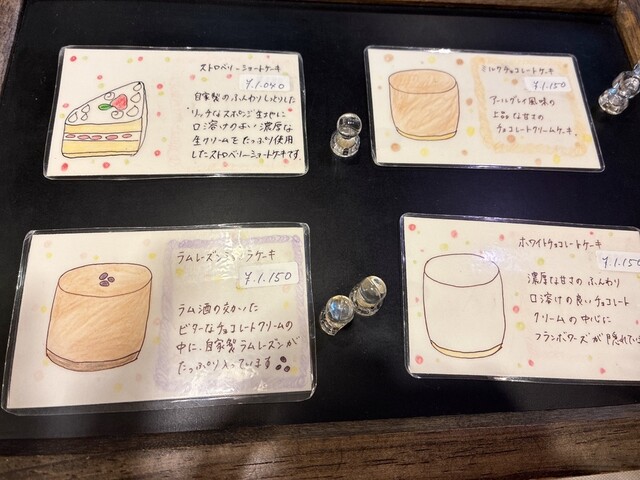 ストロベリーショートケーキ
¥.1.040
自家製のふんわりしっとりした
リッチなスポンジ生地に
口溶けのよい濃厚な
生クリームをたっぷり使用
したストロベリーショートケーキです。
ミルクチョコレートケーキ
¥.1.150
アールグレイ風味の
上品な甘さの
チョコレートクリームケーキ
ラムレーズンショコラケーキ
¥.1.150
ラム酒の効いた
ビターなチョコレートクリームの
中に、自家製ラムレーズンが
たっぷり入っています
ホワイトチョコレートケーキ
¥.1.150
濃厚な甘さのふんわり
口溶けの良いチョコレート
クリームの中心に
フランボワーズが隠れてい